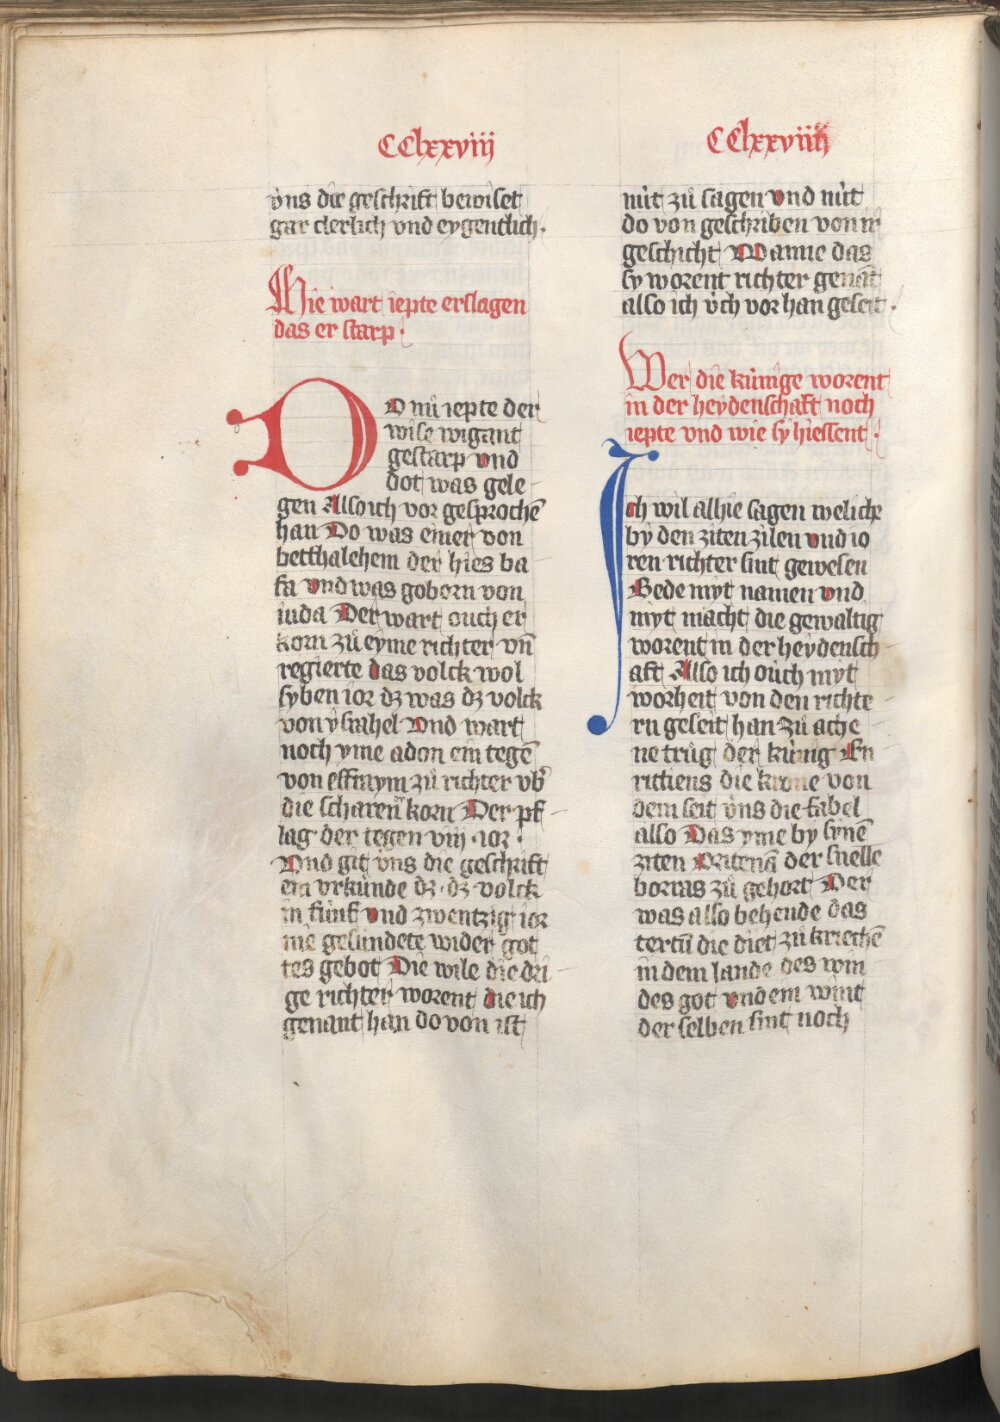 CClxxviij
v́ns die geschrift bewiset
gar clerlich vnd eygentlich.
Hie wart iepte erslagen
das er starp.
DO nū iepte der
wise wigant
gestarp vnd
dot was gele
gen Also ich vor gesprochē
han Do was einer von
betthalehem der hies ba
sa vnd was goborn von
iuda Der wart ouch er
korn zů eyme richter vn̄
regierte das volck wol
syben ior dz was dz volck
von ysrahel Vnd wart
noch yme adon ein tegē
von effraym zů richter vb̾
die scharen korn Der pf
lag der tegen viij ior.
Vnd git v́ns die geschrift
ein vrkúnde dz dz volck
in fúnf vnd zwentzig ior
nie gesúndete wider got
tes gebot Die wile die dri
ge richter worent die ich
genant han do von ist
CClxxviiij
nút zů sagen vnd nút
do von geschriben von ir
geschicht Wanne das
sy worent richter genāt
also ich v́ch vor han geseit.
Wer die kúnige worent
in der heydenschaft noch
iepte vnd wie sy hiessent.
Ich wil alhie sagen weliche
by den ziten zilen vnd io
ren richter sint gewesen
Bede myt namen vnd
myt macht die gewaltig
worent in der heydensch
aft Also ich oůch myt
worheit von den richte
rn geseit han zů athe
ne trůg der kúnig En
rictiens die krone von
dem seit v́ns die fabel
also Das yme by synē
ziten Oritenā der snelle
borras zů gehort Der
was also behende das
tertū die diet zů kriechē
in dem lande des win
des got vnd ein wint
der selben sint noch